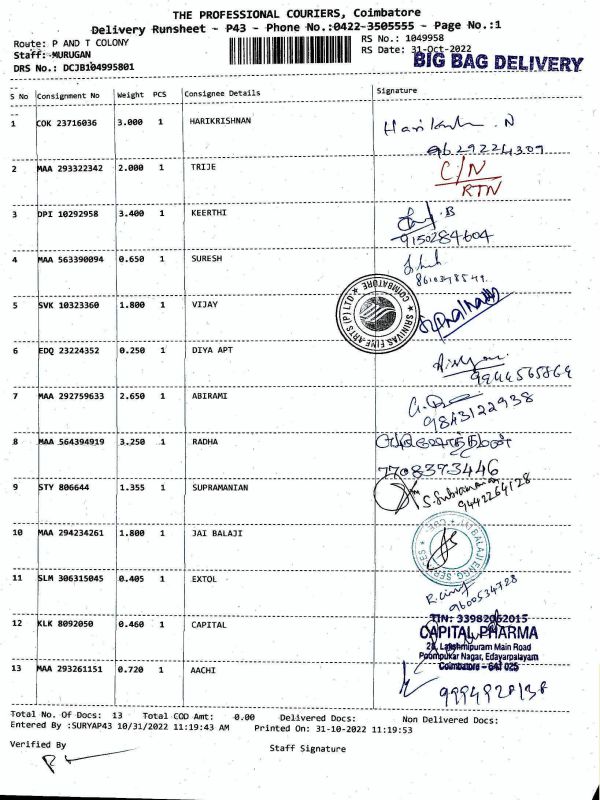 THE PROFESSIONAL COURIERS, Coimbatore
Delivery Runsheet - P43 - Phone No.:0422-3505555 - Page No.:1
Route: P AND T COLONY
RS No.: 1049958
Staff: MURUGAN
RS Date: 31-Oct-2022
DRS No.: DCJB104995801
BIG BAG DELIVERY
S No Consignment No Weight PCS Consignee Details Signature
1 COK 23716036 3.000 1 HARIKRISHNAN
9629224309
2 MAA 293322342 2.000 1 TRIJE C/N
RTN
3 DPI 10292958 3.400 1 KEERTHI
9150284604
4 MAA 563390094 0.650 1 SURESH
SRINIVAS FINE ARTS (P) LTD. ★ COIMBATORE ★
5 SVK 10323360 1.800 1 VIJAY
6 EDQ 23224352 0.250 1 DIYA APT
9944565864
7 MAA 292759633 2.650 1 ABIRAMI
9843122938
8 MAA 564394919 3.250 1 RADHA
7708393446
9 STY 806644 1.355 1 SUPRAMANIAN S. Subramanian
9442264128
10 MAA 294234261 1.800 1 JAI BALAJI
JAI BALAJI ENGG. SERVICES ★ CBE. ★
11 SLM 306315045 0.405 1 EXTOL
9600534728
12 KLK 8092050 0.460 1 CAPITAL
TIN: 33982052015
CAPITAL PHARMA
28, Lakshmipuram Main Road
Poompukar Nagar, Edayarpalayam
Coimbatore – 641 025
13 MAA 293261151 0.720 1 AACHI
Total No. Of Docs: 13 Total COD Amt: 0.00 Delivered Docs: Non Delivered Docs:
Entered By :SURYAP43 10/31/2022 11:19:43 AM Printed On: 31-10-2022 11:19:53
Verified By
Staff Signature